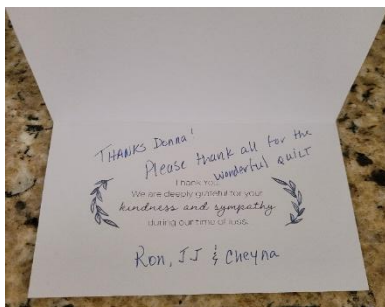 THANKS Donna!
Please thank all for the
wonderful QUILT
Thank You
We are deeply grateful for your
kindness and sympathy
during our time of loss.
Ron, JJ & Cheyna